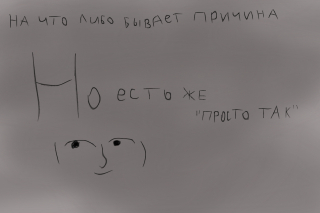 НА ЧТО ЛИБО БЫВАЕТ ПРИЧИНА
Но есть же
"ПРОСТО ТАК"